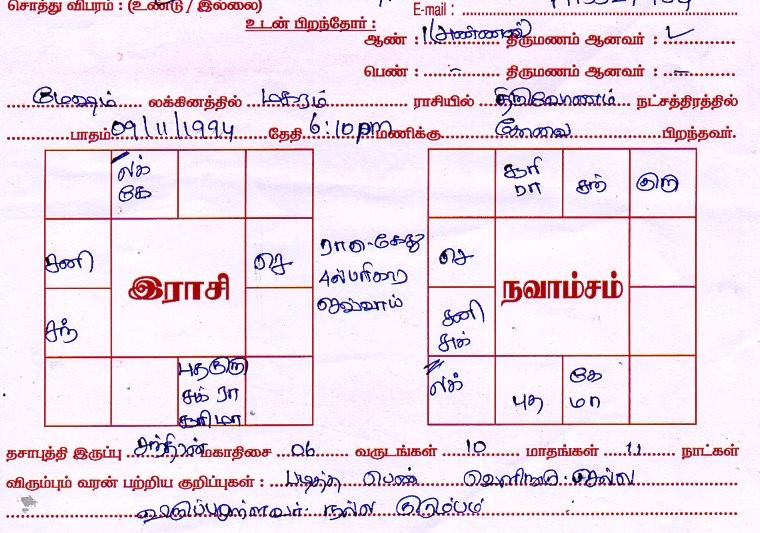 சொத்து விபரம் : (உண்டு / இல்லை)
E-mail :
உடன் பிறந்தோர் :
ஆண் : 1(அண்ணன்) திருமணம் ஆனவர் : ✓
பெண் : - திருமணம் ஆனவர் : -
மேஷம் லக்கினத்தில் மகரம் ராசியில் திருவோணம் நட்சத்திரத்தில்
பாதம் 09/11/1994 தேதி 6:10pm மணிக்கு கோவை பிறந்தவர்.
லக்
கே
சனி
செ
இராசி
சந்
புத குரு
சுக் ரா
சூரி மா
ராகு-கேது
செவ்வாய்
சூரி
ரா
சந்
குரு
செ
நவாம்சம்
சனி
சுக்
லக்
புத
கே
மா
தசாபுத்தி இருப்பு சந்திரன் மகாதிசை 06 வருடங்கள் 10 மாதங்கள் 11 நாட்கள்
விரும்பும் வரன் பற்றிய குறிப்புகள் : படித்த பெண் வெளிநாடு செல்ல
விருப்பமுள்ளவர். நல்ல குடும்பம்